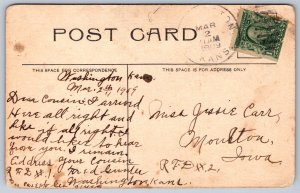 POST CARD
MAR
2
1909
KANS.
THIS SPACE FOR CORRESPONDENCE.
THIS SPACE FOR ADDRESS
Washington Kans.
Mar. 2th 1909
Dear Cousin: I arrived
Here all right and
like it all right.
would like to hear
from you. I remain
Address your Cousin
Fred
R.F.D. #2.
Washington Kans.
Miss Jessie Carr,
Moulton,
Iowa
R.F.D. #2,